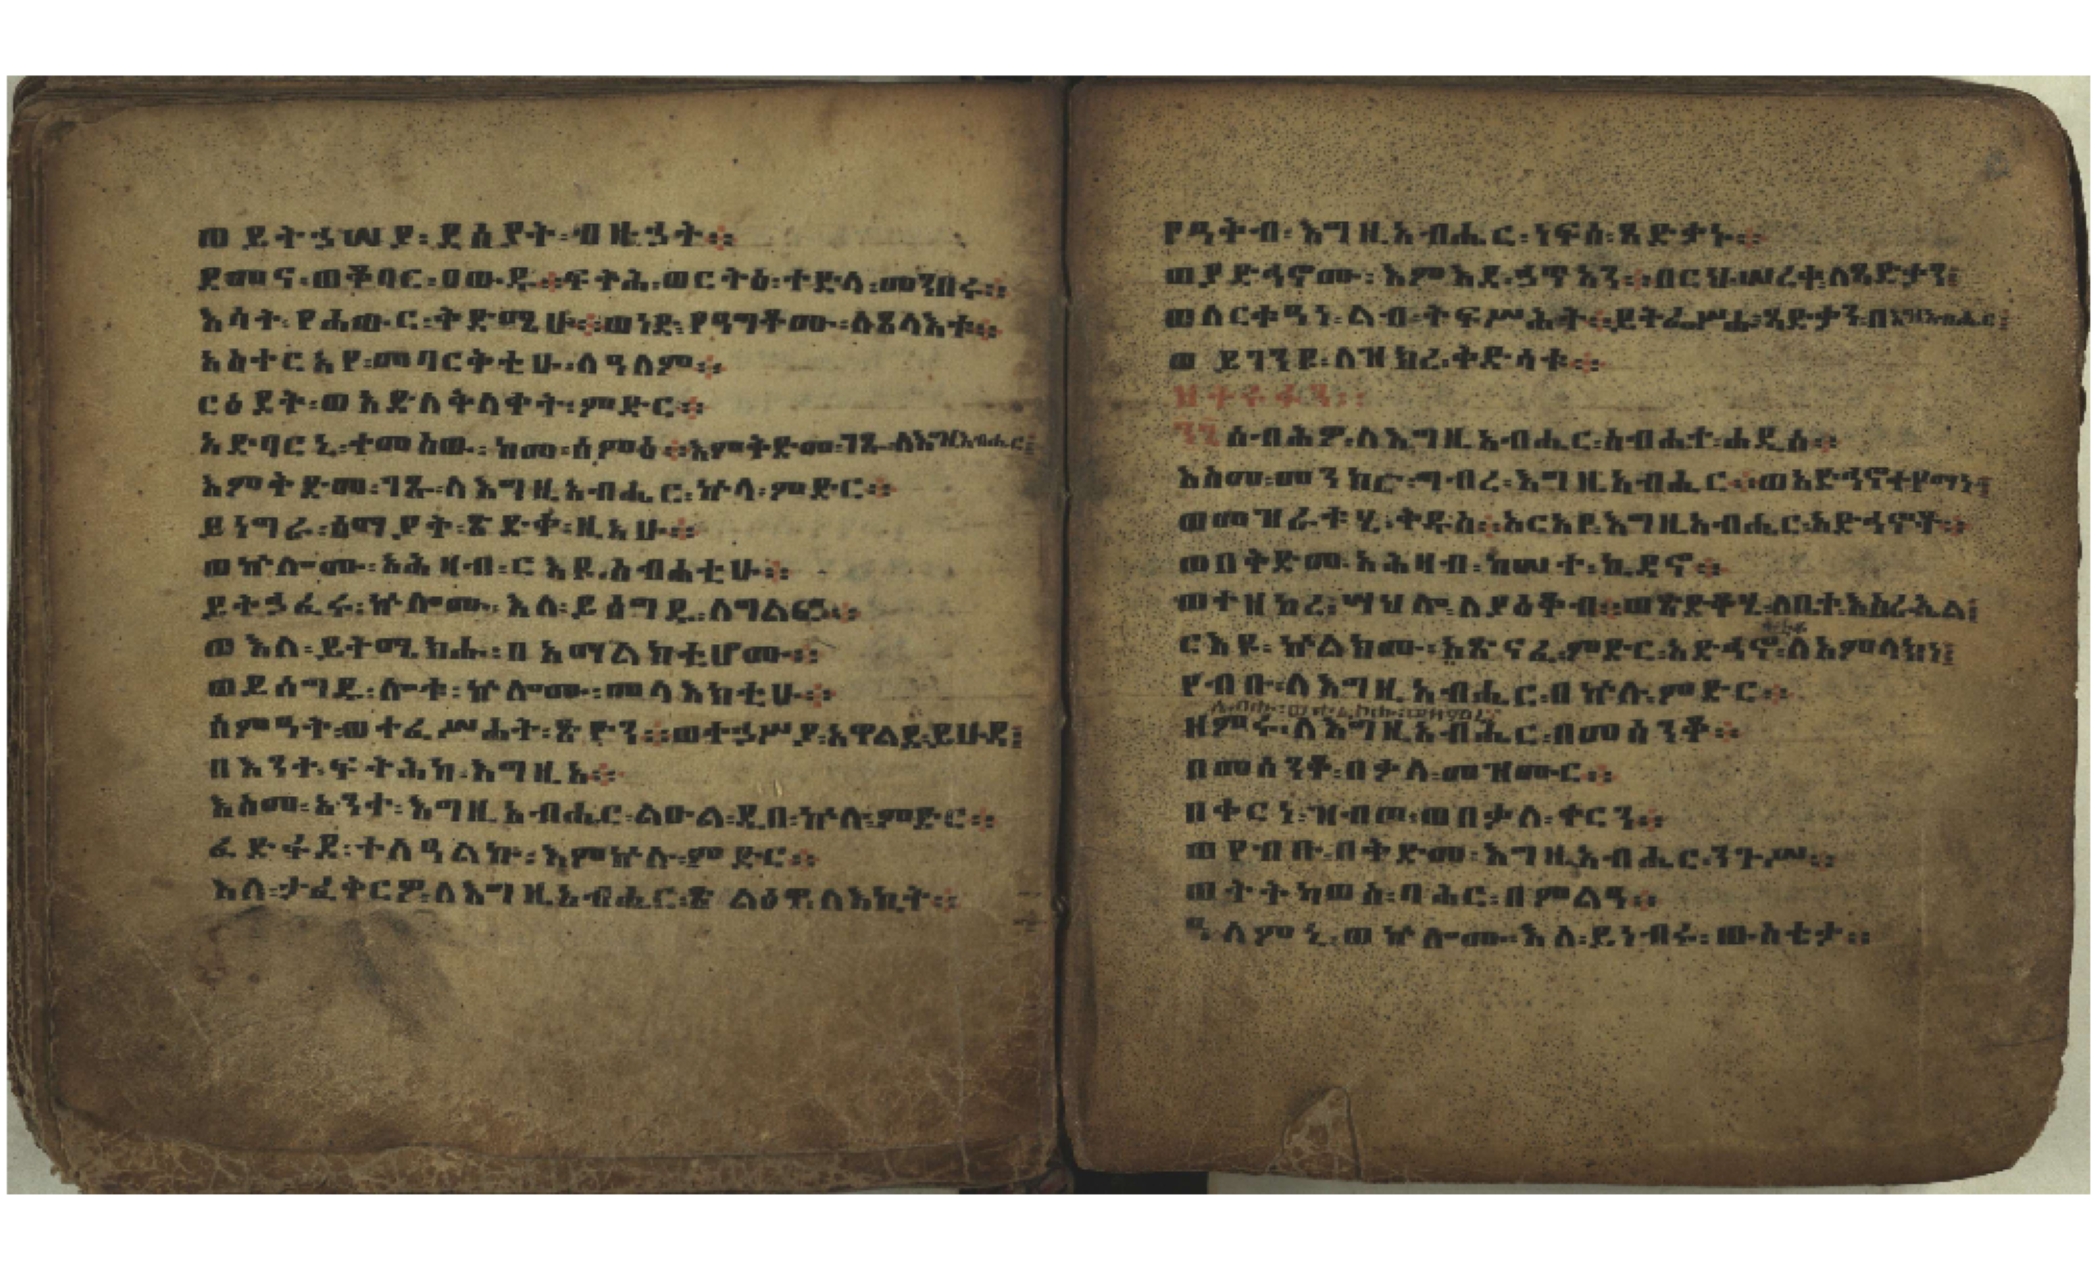 ወይትኃሠያ፡ደሰያት፡ብዙኃት።
ደመና፡ወቆባር፡ዐውዱ።ፍትሕ፡ወርትዕ፡ተድላ፡መንበሩ።
እሳት፡የሐውር፡ቅድሜሁ።ወነድ፡የዓግቶሙ፡ለጸላእቱ።
አስተርአየ፡መባርቅቲሁ፡ለዓለም።
ርዕደት፡ወአድለቅለቀት፡ምድር።
አድባርኒ፡ተመሰው፡ከመ፡ሰምዕ።እምቅድመ፡ገጹ፡ለእግዚአብሔር፤
እምቅድመ፡ገጹ፡ለእግዚአብሔር፡ኵላ፡ምድር።
ይነግራ፡ሰማያት፡ጽድቀ፡ዚአሁ።
ወኵሎሙ፡አሕዛብ፡ርእዩ፡ስብሐቲሁ።
ይትኃፈሩ፡ኵሎሙ፡እለ፡ይሰግዱ፡ለግልፎ።
ወእለ፡ይትሜክሑ፡በአማልክቲሆሙ።
ወይሰግዱ፡ሎቱ፡ኵሎሙ፡መላእክቲሁ።
ሰምዓት፡ወተፈሥሐት፡ጽዮን።ወተኃሥያ፡አዋልደ፡ይሁዳ፤
በእንተ፡ፍትሕከ፡እግዚአ።
እስመ፡አንተ፡እግዚአብሔር፡ልዑል፡ዲበ፡ኵሉ፡ምድር።
ፈድፋደ፡ተለዓልከ፡እምኵሉ፡ምድር።
እለ፡ታፈቅርዎ፡ለእግዚአብሔር፡ጽልዕዋ፡ለእኪት።
የዓቅብ፡እግዚአብሔር፡ነፍሰ፡ጻድቃኑ።
ወያድኅኖሙ፡እምእደ፡ኃጥአን።በርህ፡ሠረቀ፡ለጻድቃን፤
ወለርቱዓነ፡ልብ፡ትፍሥሕት።ይትፌሥሑ፡ጻድቃን፡በእግዚአብሔር፤
ወይገንዩ፡ለዝክረ፡ቅድሳቱ።
ሰብሕዎ፡ለእግዚአብሔር፡ስብሐተ፡ሐዲሰ።
እስመ፡መንክረ፡ግብረ፡እግዚአብሔር።ወአድኅኖተ፡የማነ፤
ወመዝራዕቱሂ፡ቅዱስ።አርአየ፡እግዚአብሔር፡አድኅኖቶ።
ወበቅድመ፡አሕዛብ፡ከሠተ፡ኪዳኖ።
ወተዘከረ፡ሣህሎ፡ለያዕቆብ።ወጽድቆሂ፡ለቤተ፡እስራኤል፤
ርእዩ፡ኵልክሙ፡አጽናፈ፡ምድር፡አድኅኖ፡ለአምላክነ፤
የብቡ፡ለእግዚአብሔር፡በኵሉ፡ምድር።
ዘምሩ፡ለእግዚአብሔር፡በመሰንቆ።
በመሰንቆ፡በቃለ፡መዝሙር።
በቀርነ፡ዝብጦ፡ወበቃለ፡ቀርን።
ወየብቡ፡በቅድመ፡እግዚአብሔር፡ንጉሥ።
ወትትከወስ፡ባሕር፡በምልዓ።
ዓለምኒ፡ወኵሎሙ፡እለ፡ይነብሩ፡ውስቴታ።